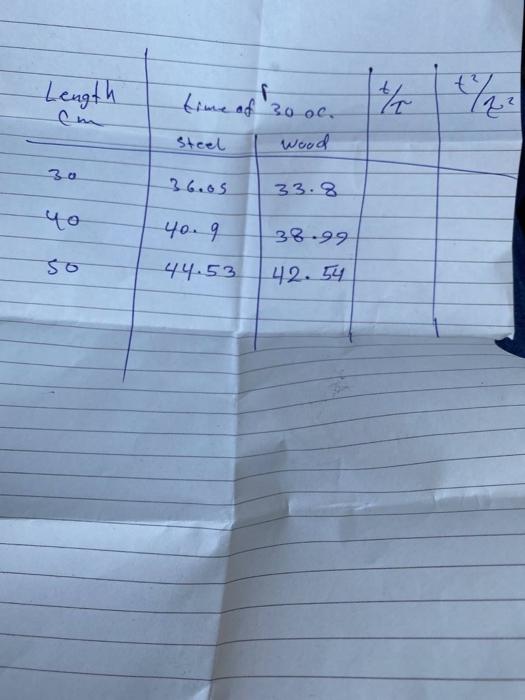 Length time of 30 oc. t/τ t²/τ²
cm
steel wood
30 36.05 33.8
40 40.9 38.99
50 44.53 42.54